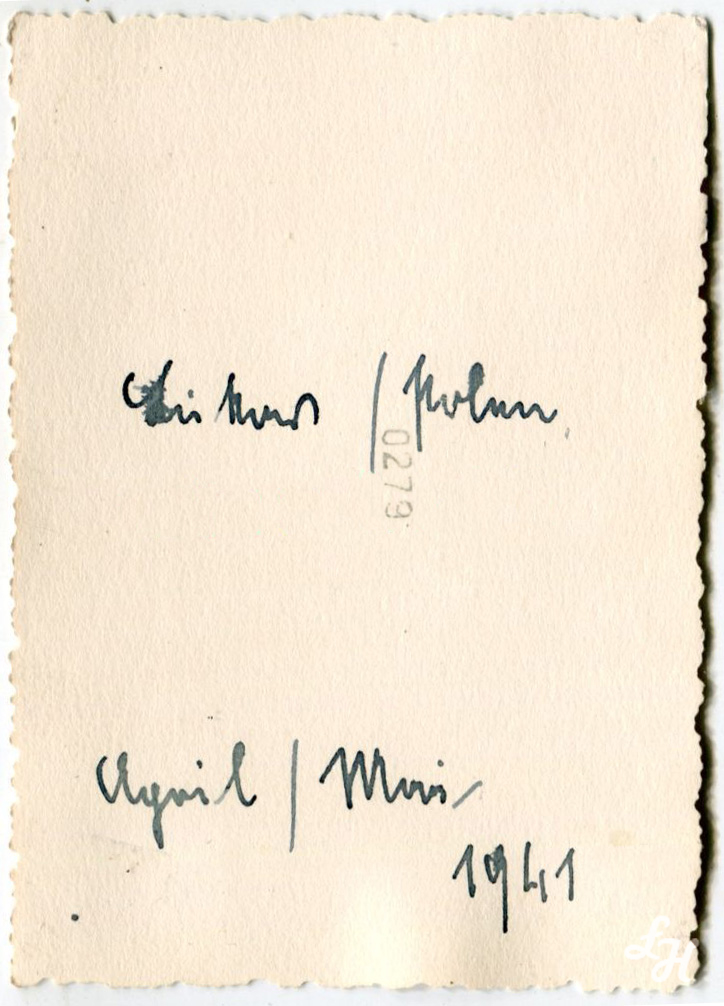 Lukow / Polen.
0279
April / Mai
1941
LH